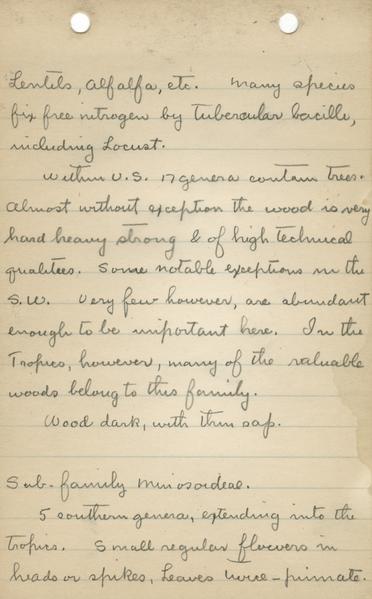 Lentils, alfalfa, etc. Many species
fix free nitrogen by tubercular bacilli,
including Locust.
Within U.S. 17 genera contain trees.
Almost without exception the wood is very
hard heavy strong & of high technical
qualities. Some notable exceptions in the
S.W. Very few however, are abundant
enough to be important here. In the
Tropics, however, many of the valuable
woods belong to this family.
Wood dark, with thin sap.
Sub-family Mimosoideae.
5 southern genera, extending into the
tropics. Small regular flowers in
heads or spikes, Leaves twice-pinnate.